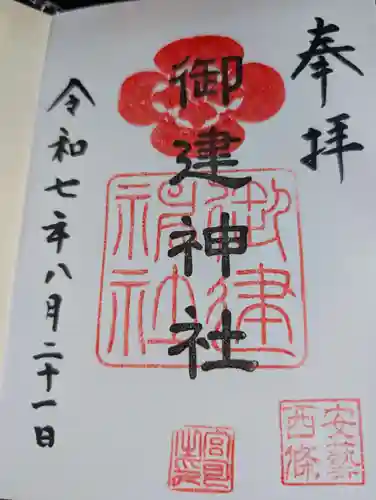 奉拝
御建神社
御建
神社
安藝
西條
令和七年八月二十一日